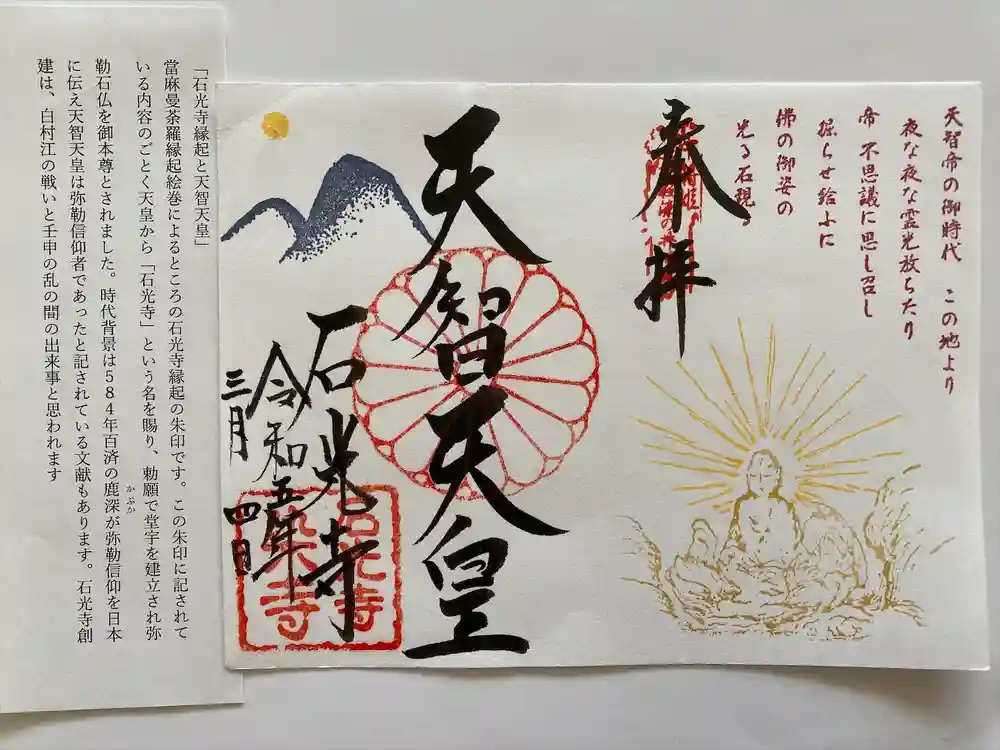 天智帝の御時代 この地より
夜な夜な霊光放ちたり
帝 不思議に思し召し
掘らせ給ふに
佛の御姿の
光る石現る
奉拝
天智天皇
石光寺
令和五年
三月四日
石光寺
染寺
「石光寺縁起と天智天皇」
當麻曼荼羅縁起絵巻によるところの石光寺縁起の朱印です。この朱印に記されて
いる内容のごとく天皇から「石光寺」という名を賜り、勅願で堂宇を建立され弥
勒石仏を御本尊とされました。時代背景は584年百済の鹿深が弥勒信仰を日本
かふか
に伝え天智天皇は弥勒信仰者であったと記されている文献もあります。石光寺創
建は、白村江の戦いと壬申の乱の間の出来事と思われます